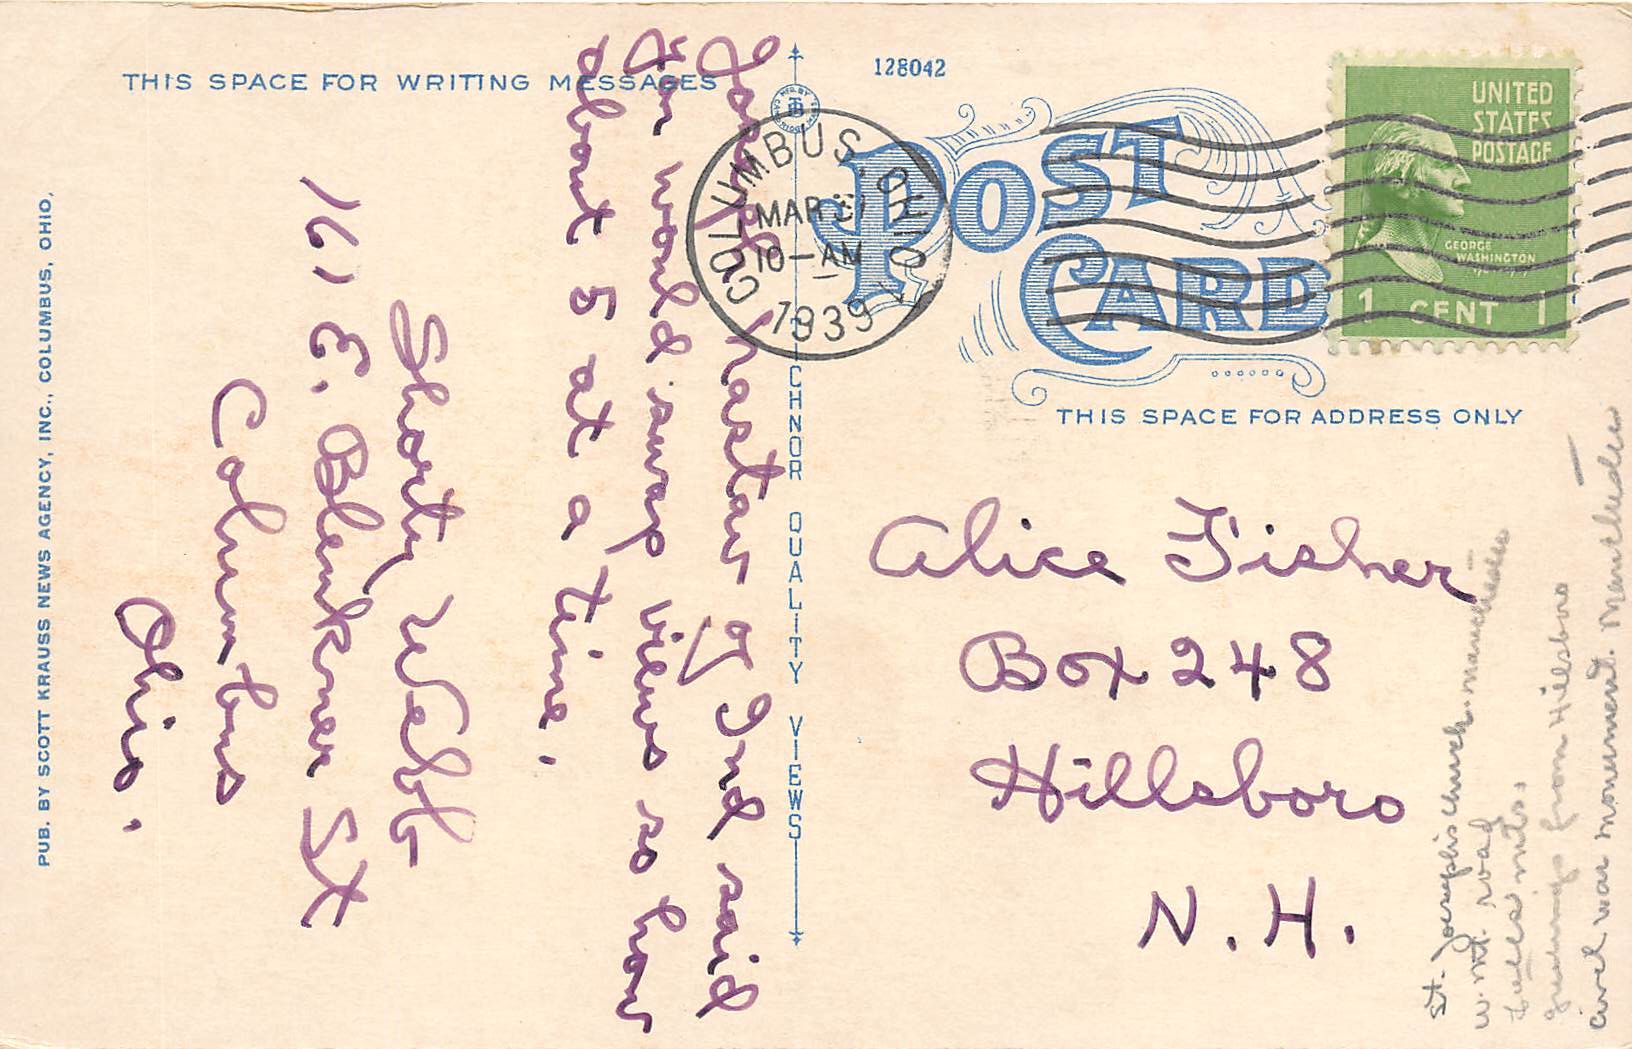 THIS SPACE FOR WRITING MESSAGES
128042
POST CARD
THIS SPACE FOR ADDRESS ONLY
UNITED
STATES
POSTAGE
GEORGE
WASHINGTON
1 CENT 1
COLUMBUS, OHIO
MAR 31
10—AM
1939
PUB. BY SCOTT KRAUSS NEWS AGENCY, INC., COLUMBUS, OHIO.
CHNOR QUALITY VIEWS
Joseph of Ind said
you would swap views so how
about 5 at a time.
Shorty Webb
161 E. Blenkner St
Columbus
Ohio.
Alice Fisher
Box 248
Hillsboro
N. H.
St. Joseph's church. manchester
w. mt. road
mts.
greetings from Hillsboro
civil war monument. Manchester